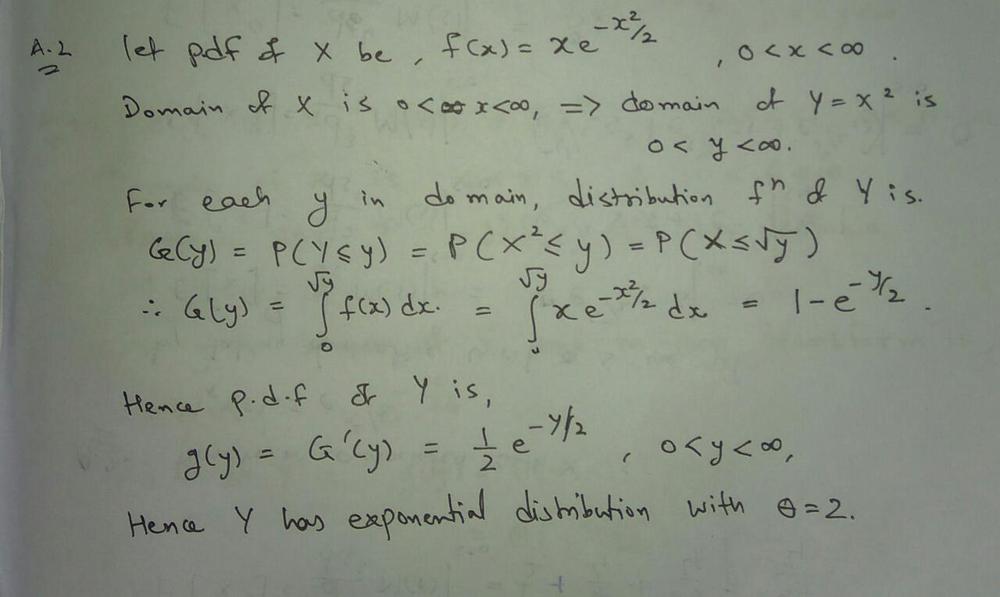 A.2 let pdf of X be, f(x) = xe^{-x²/2}, 0 < x < ∞.
Domain of X is 0 < x < ∞, => domain of Y = x² is
0 < y < ∞.
For each y in domain, distribution fⁿ of Y is.
G(y) = P(Y ≤ y) = P(X² ≤ y) = P(X ≤ √y)
∴ G(y) = ∫₀^{√y} f(x) dx. = ∫₀^{√y} xe^{-x²/2} dx = 1 - e^{-y/2}.
Hence p.d.f of Y is,
g(y) = G'(y) = 1/2 e^{-y/2}, 0 < y < ∞,
Hence Y has exponential distribution with θ = 2.